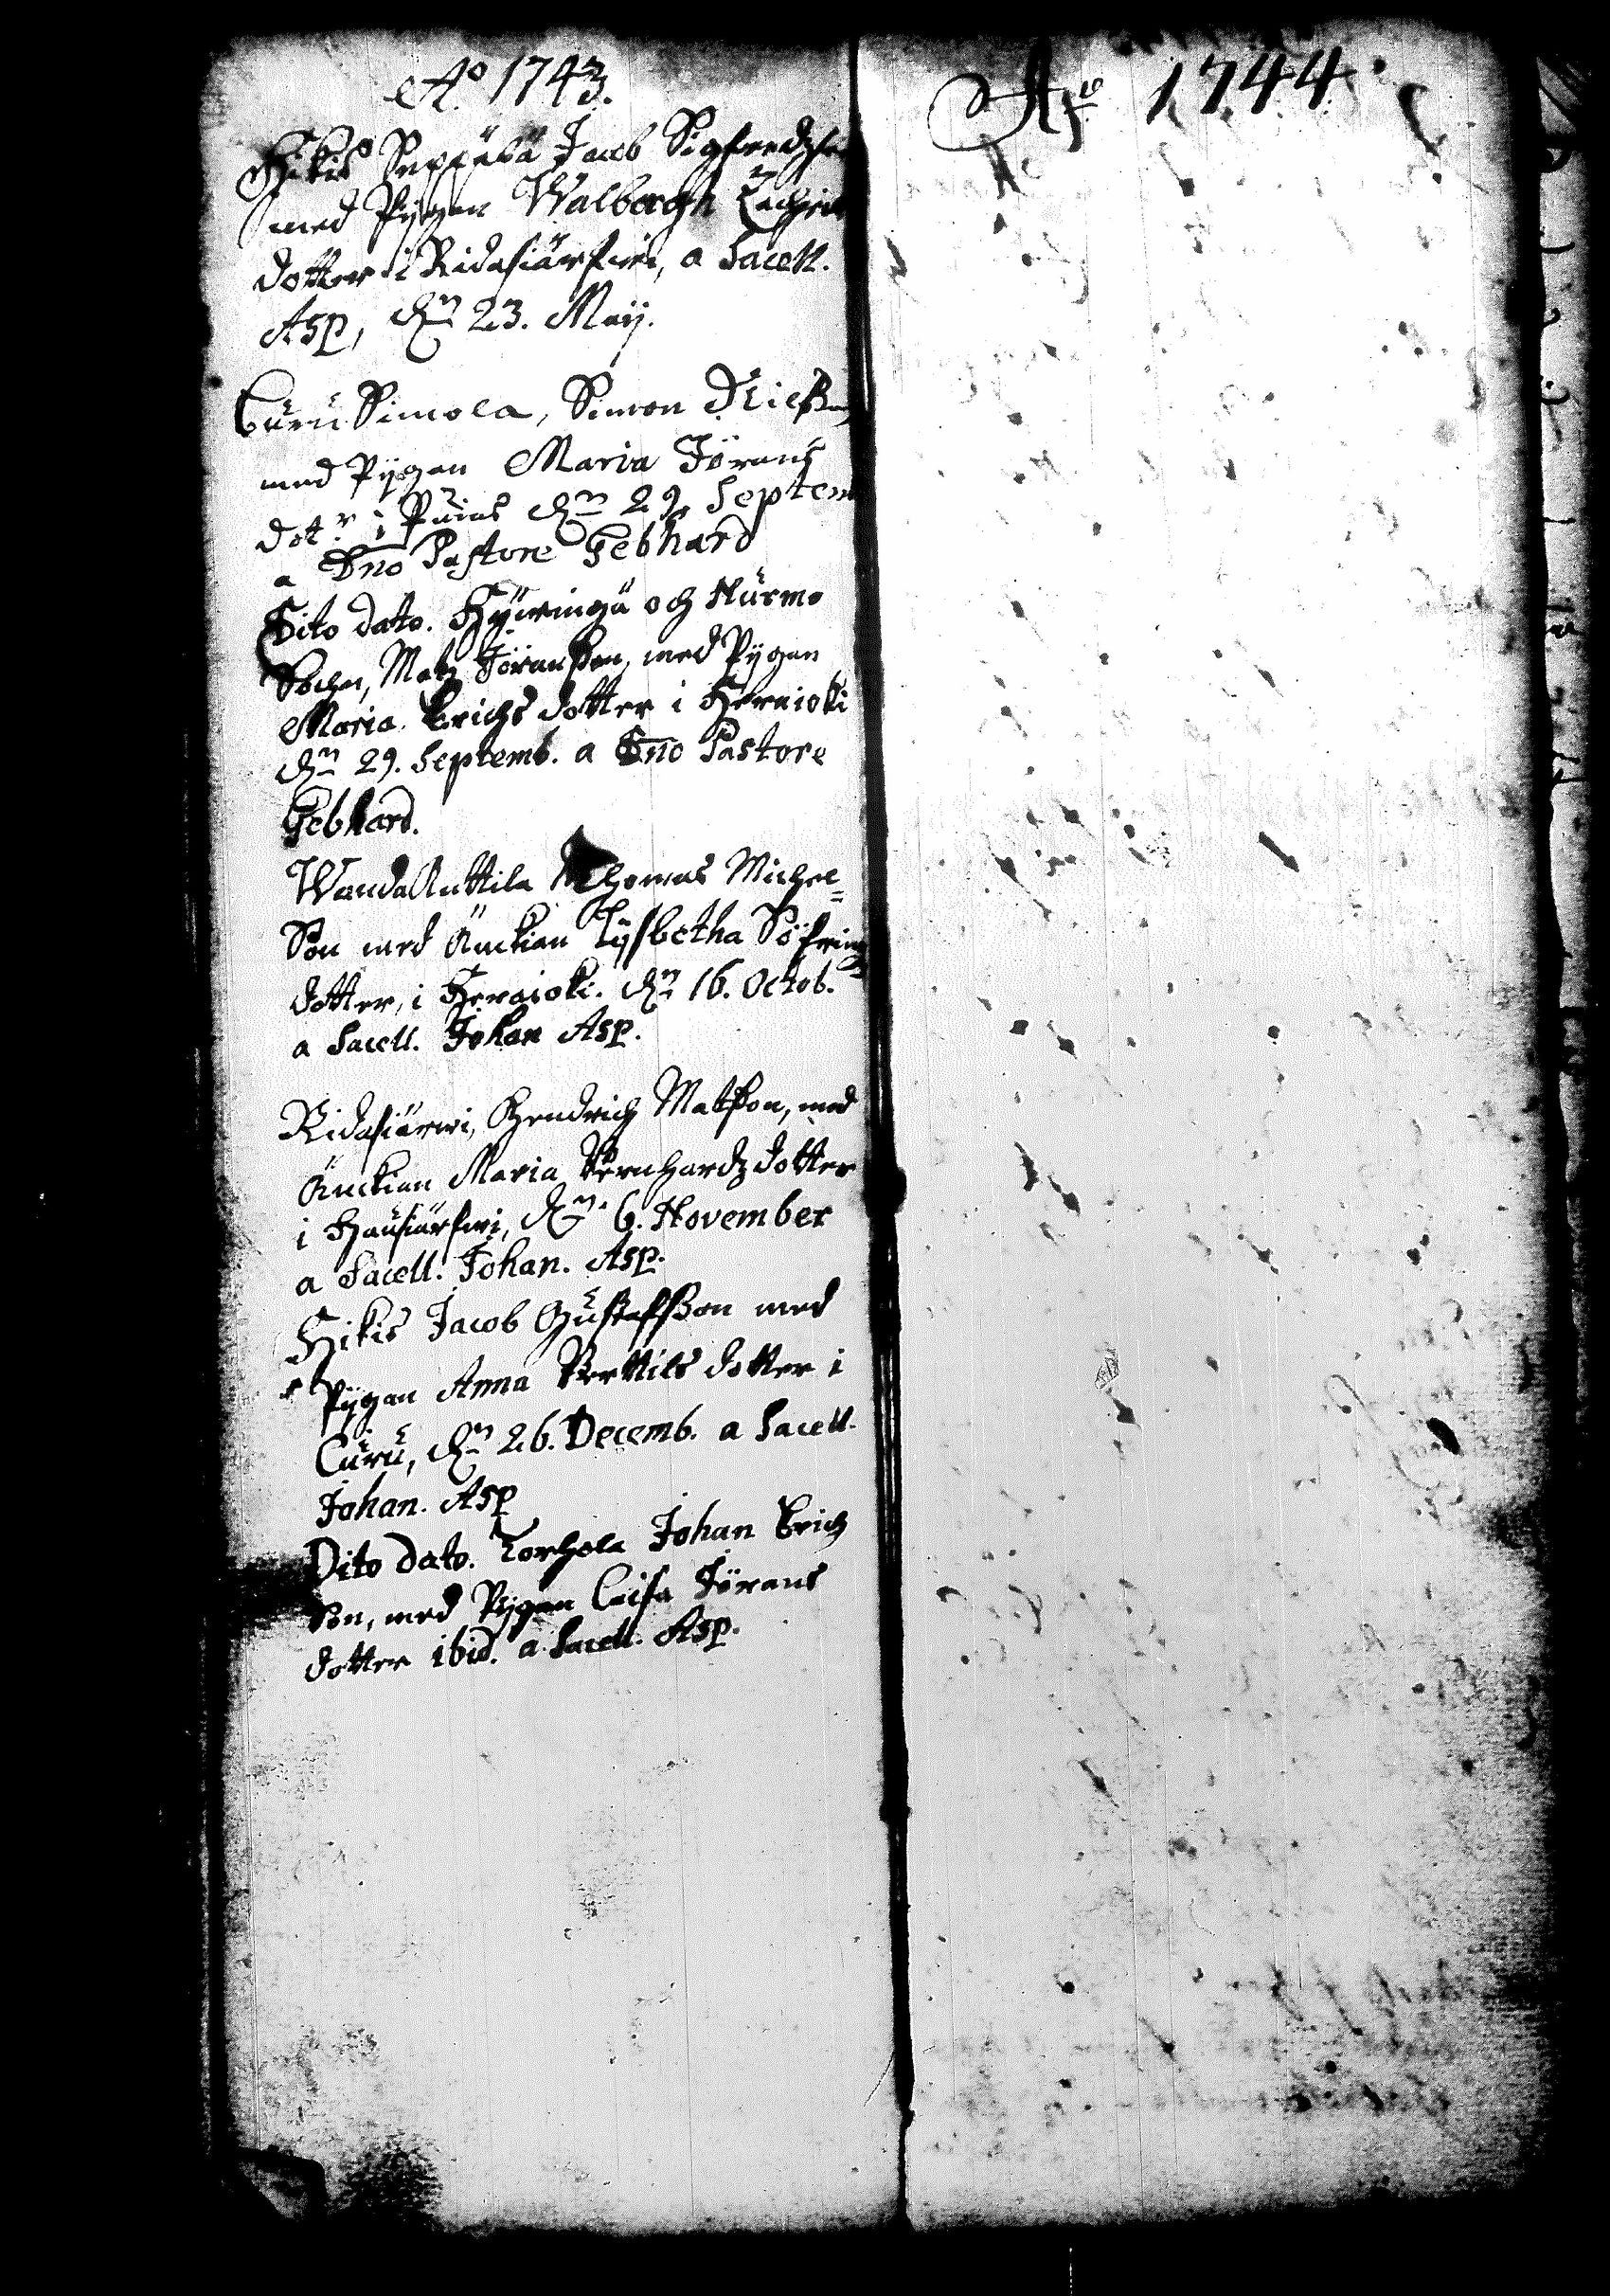 Ao 1743.
Hikiö Seppälä Jacob Sigfredzson
med Pigan Walborgh
dotter i Ridasiärfwi, a Sacell.
Asp, dn 23. Maij.
Curu Simola, Simon
med Pÿgan Maria Jörans
dotr i Puias dn 29 Septem
a Dno Pastore Gebhard
Dito dato. Hÿwingä och Nurmi
Sochn, Matz Jöranßon, med Pÿgan
Maria Erichs dotter i Heraioki
dn 29. Septemb. a Dno Pastore
Gebhard.
Wanda Anttila Thomas Michel=
Son med Änckian Lÿsbetha Söfrins
dotter, i Heraioki. dn 16. Octob.
a Sacell. Johan Asp.
Ridasiärwi, Hendrich Matßon, med
Änckian Maria Bernhardz dotter
i Hausiärfwi, dn 6. November
a Sacell. Johan. Asp.
Hikis Jacob Gustafßon med
Pÿgan Anna Bertils dotter i
Curu, dn 26. Decemb. a Sacell.
Johan. Asp
Dito dato. Torhola Johan Erich
Son, med Pÿgan Caisa Jörans
dotter ibid. a Sacell. Asp.
Ao 1744.